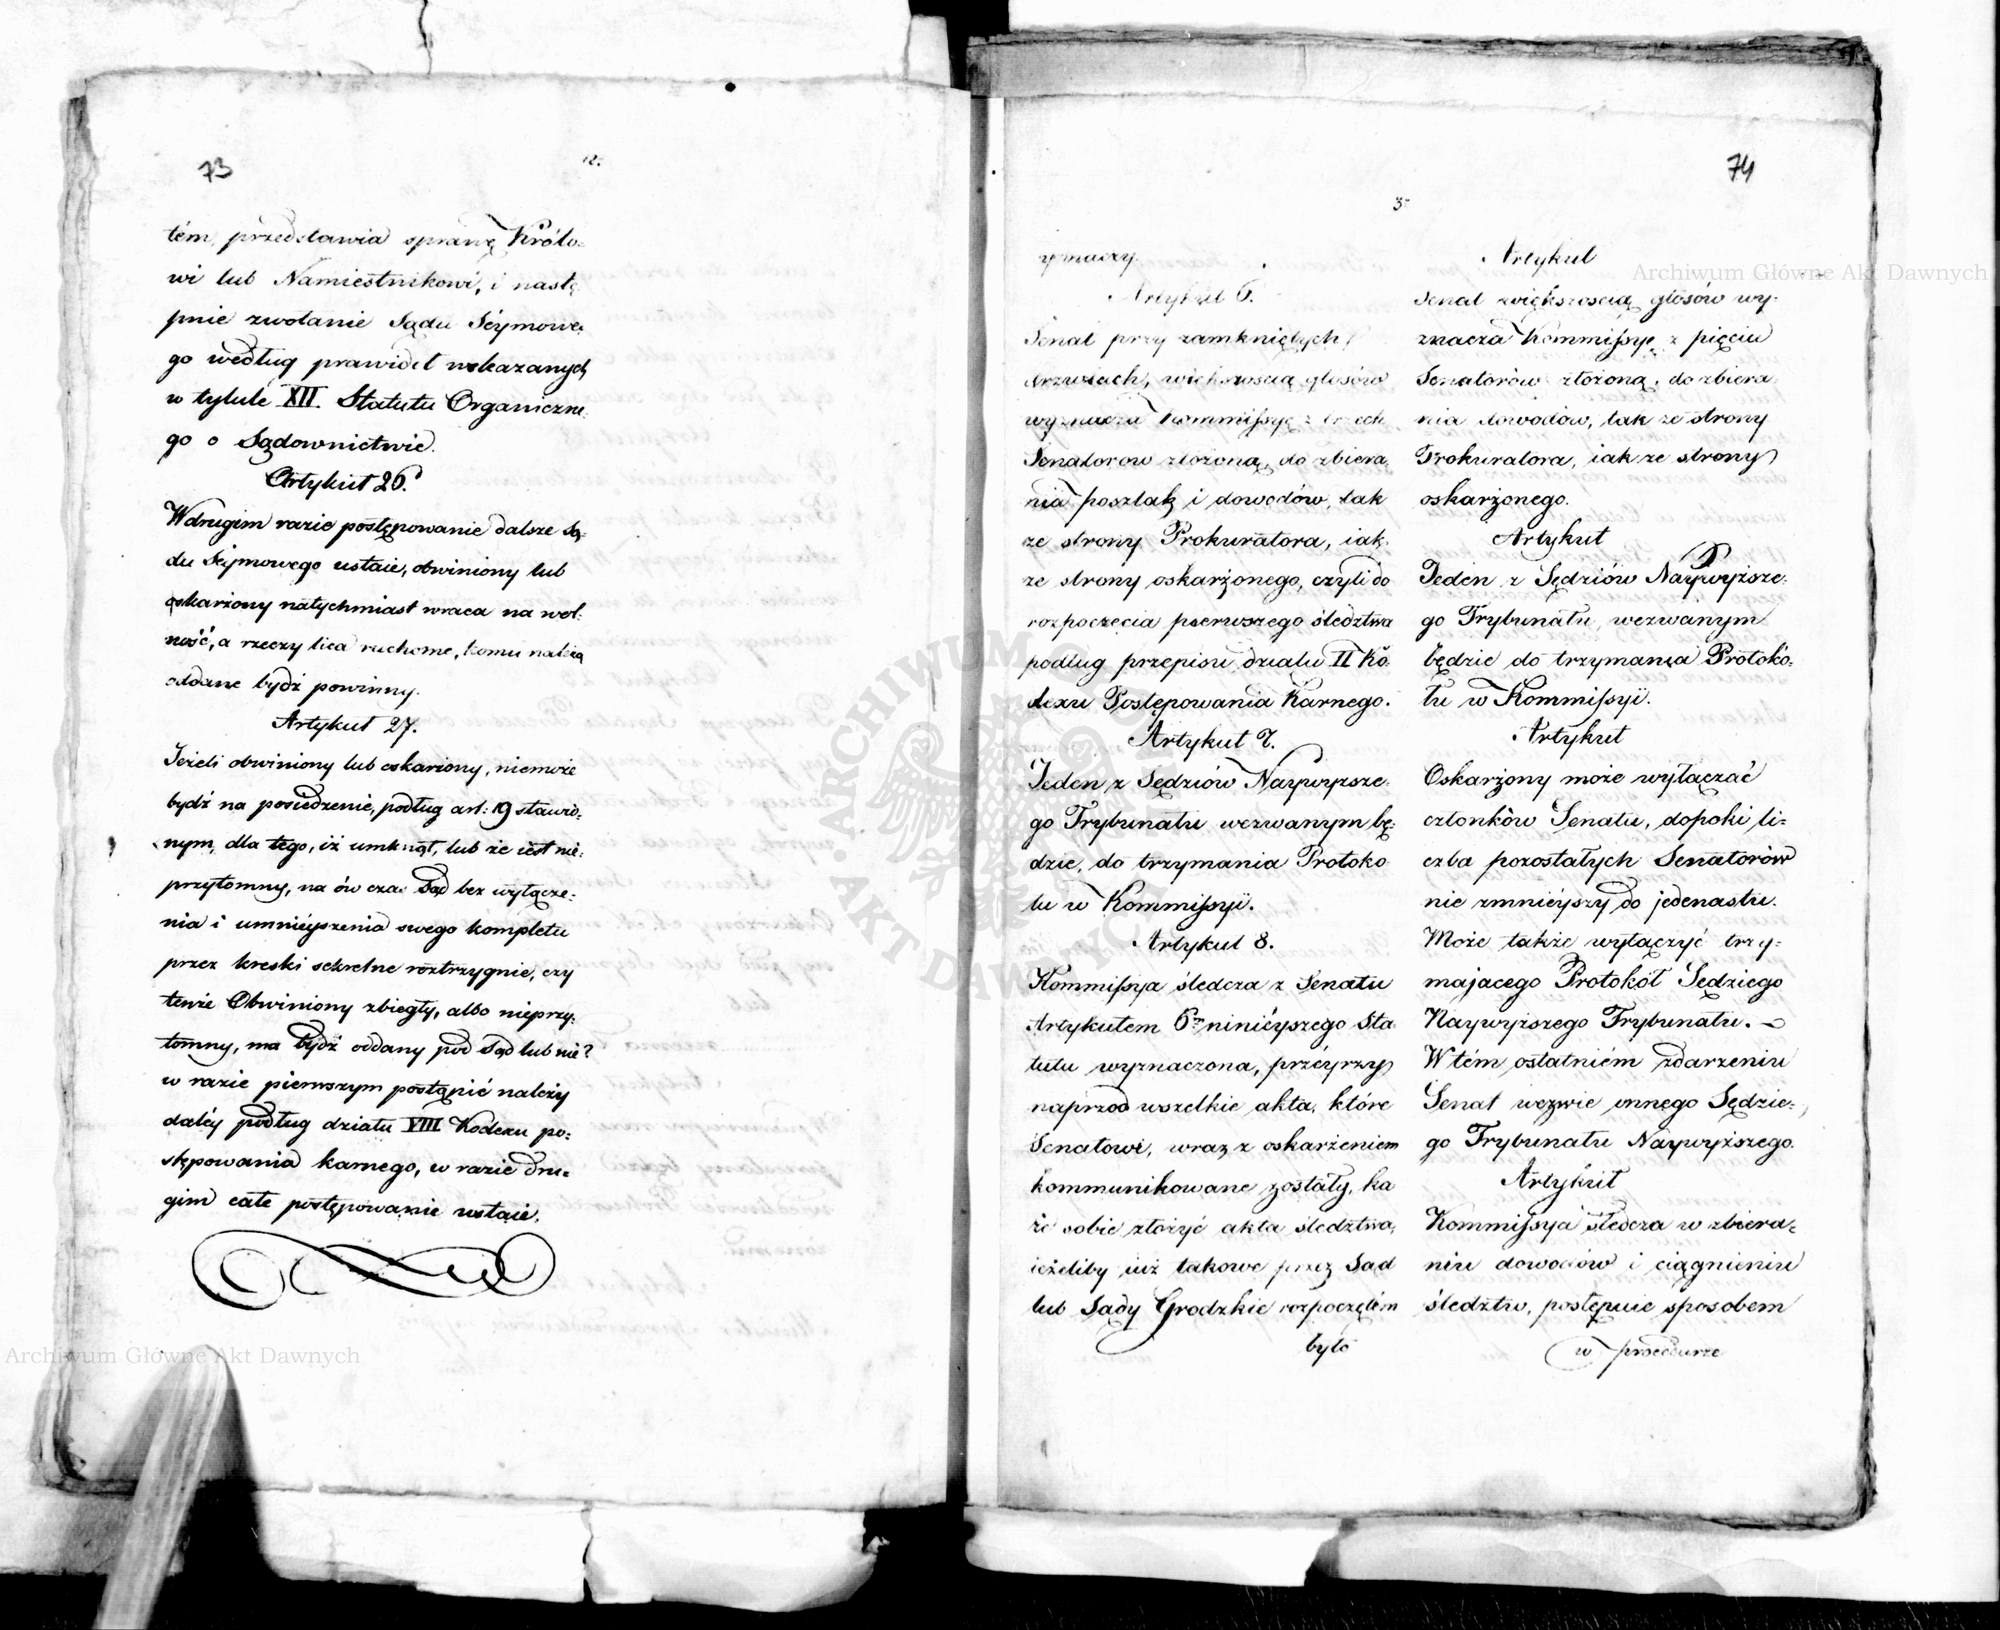 73
12.
tém, przedstawia sprawę Królo-
wi lub Namiestnikowi, i nastę
pnie zwołanie Sądu Séymowe-
go według prawideł wskazanych
w tytule XII. Statutu Organiczne-
go o Sądownictwie.
Artykuł 26.
W drugim razie postępowanie dalsze Są-
du Séjmowego ustaie, obwiniony lub
oskarżony natychmiast wraca na wol-
ność, a rzeczy lica ruchome, komu należą
oddane bydź powinny.
Artykuł 27.
Jeżeli obwiniony lub oskarżony, niemoże
bydź na posiedzenie, podług art: 19 stawio-
nym, dla tego, iż umknął, lub że iest nie-
przytomny, na ów czas Sąd bez wyłącze-
nia i umnieyszenia swego kompletu
przez kreski sekretne roztrzygnie, czy
tenże Obwiniony zbiegły, albo nieprzy-
tomny, ma bydź oddany pod Sąd lub nié?
w razie pierwszym postąpić należy
daléy podług działu VIII Kodexu po-
stępowania karnego, w razie dru-
gim całe postępowanie ustaie.
74
3
Artykuł 6.
Senat przy zamkniętych
drzwiach, większością głosów
wyznacza Kommissyę z trzech
Senatorow złożoną, do zbiera-
nia poszlak i dowodów, tak
ze strony Prokuratora, iak
ze strony oskarżonego, czyli do
rozpoczęcia pierwszego śledztwa
podług przepisu działu II Ko-
dexu Postępowania Karnego.
Artykuł 7.
Jeden z Sędziów Naywyższe-
go Trybunału wezwanym bę-
dzie, do trzymania Protoko
łu w Kommissyi.
Artykuł 8.
Kommissya śledcza z Senatu
Artykułem 6m ninieyszego Sta-
tutu wyznaczona, przeyrzy
naprzod wszelkie akta, które
Senatowi, wraz z oskarżeniem
kommunikowane zostały, ka
że sobie złożyć akta śledztwa,
ieżeliby iuż takowe przez Sąd
lub Sądy Grodzkie rozpoczętém
było
Artykuł
Senat większością głosów wy-
znacza Kommissyę z pięciu
Senatorów złożoną, do zbiera-
nia dowodów, tak ze strony
Prokuratora, iak ze strony
oskarżonego.
Artykuł
Jeden z Sędziów Naywyższe-
go Trybunału, wezwanym
będzie do trzymania Protokó-
łu w Kommissyi.
Artykuł
Oskarżony może wyłączać
członków Senatu, dopoki li-
czba pozostałych Senatorów
nie zmniéyszy do jedenastu.
Może także wyłączyć trzy-
majacego Protokół Sędziego
Naywyższego Trybunału.
W tém ostatniém zdarzeniu
Senat wezwie innego Sędzie-
go Trybunału Naywyższego.
Artykuł
Kommissya śledcza w zbiera-
niu dowodów i ciągnieniu
śledztw, postępuie sposobem
w procedurze
Archiwum Główne Akt Dawnych
Archiwum Główne Akt Dawnych